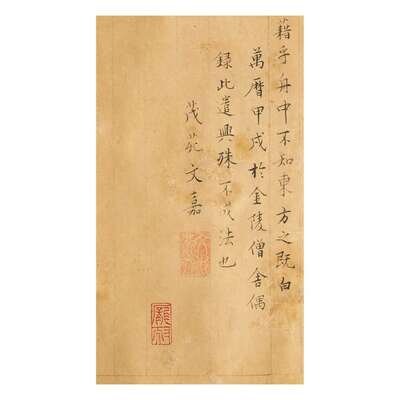 藉乎舟中不知東方之既白
萬曆甲戌於金陵僧舍偶
錄此遣興殊不成法也
茂苑文嘉